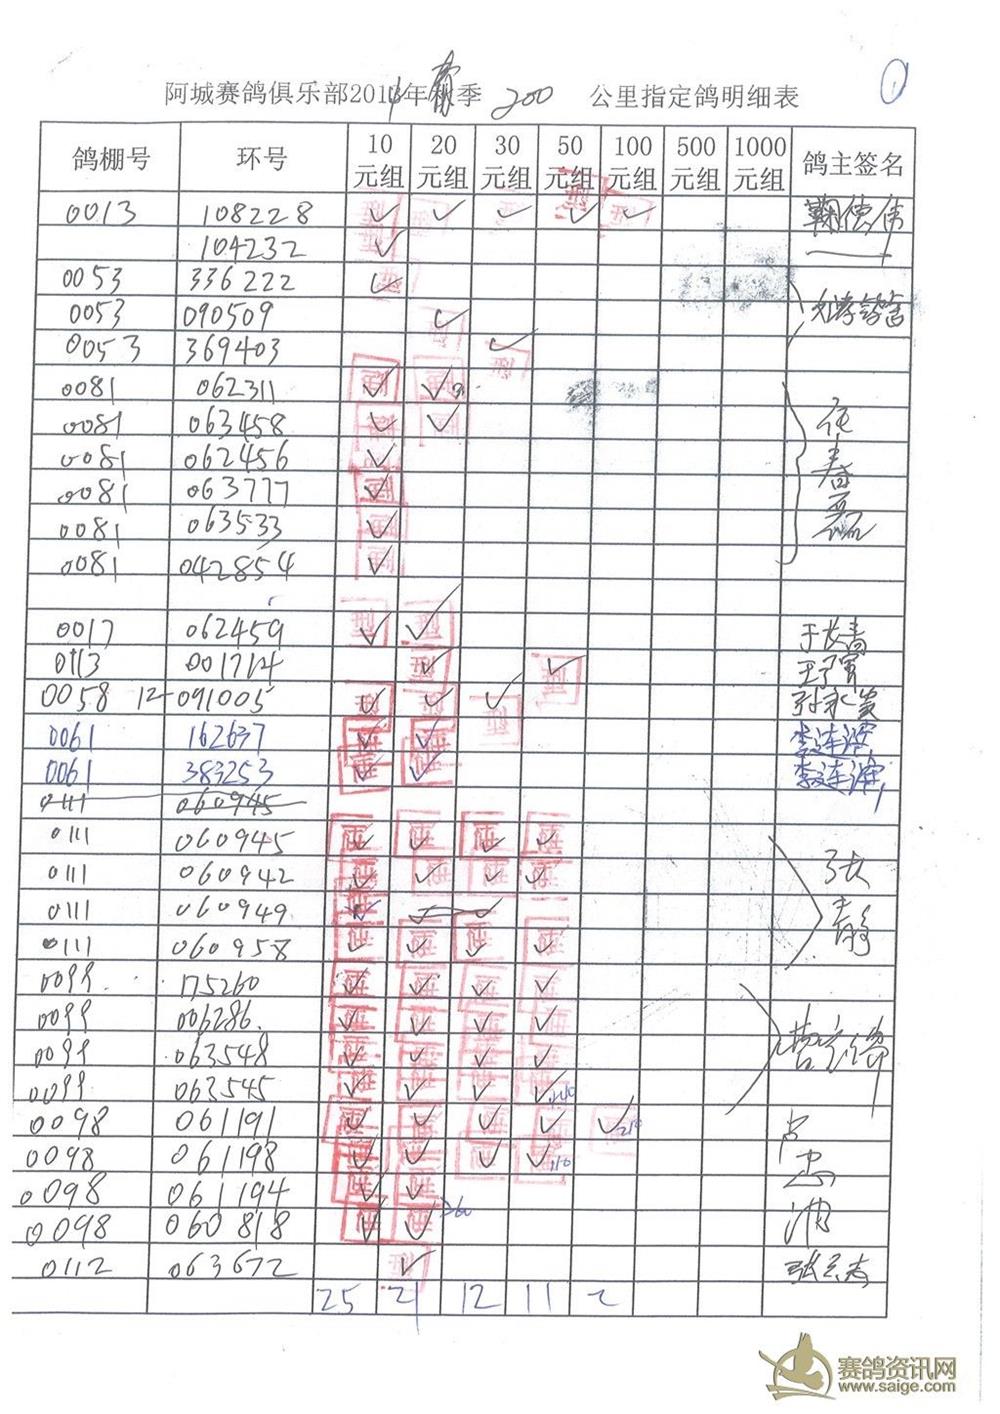 阿城赛鸽俱乐部2014年春季 200 公里指定鸽明细表 ①
鸽棚号 环号 10元组 20元组 30元组 50元组 100元组 500元组 1000元组 鸽主签名
0013 108228 ✓ ✓ ✓ ✓ ✓ 鞠德伟
104232 ✓
0053 336222 ✓
0053 090509 ✓
0053 369403 ✓
0081 062311 ✓ ✓
0081 063458 ✓ ✓
0081 062456 ✓
0081 063777 ✓
0081 063533 ✓
0081 042854 ✓
0017 062459 ✓ ✓ 于长青
0113 001714 ✓ ✓
0058 12-091005 ✓ ✓ ✓ 孙永贵
0061 162637 ✓ ✓ 李连滨
0061 383253 ✓ ✓ 李连滨
0111 060945
0111 060945 ✓ ✓ ✓ ✓ 张静
0111 060942 ✓ ✓ ✓ ✓
0111 060949 ✓ ✓ ✓
0111 060958 ✓ ✓ ✓ ✓
0099 175260 ✓ ✓ ✓ ✓
0099 006286 ✓ ✓ ✓ ✓
0099 063548 ✓ ✓ ✓ ✓
0099 063545 ✓ ✓ ✓ ✓ 440
0098 061191 ✓ ✓ ✓ ✓ ✓ 210
0098 061198 ✓ ✓ ✓ ✓ 110
0098 061194 ✓ ✓
0098 060818 ✓ ✓ >60
0112 063672 ✓
25 21 12 11 2
赛鸽资讯网
www.saige.com